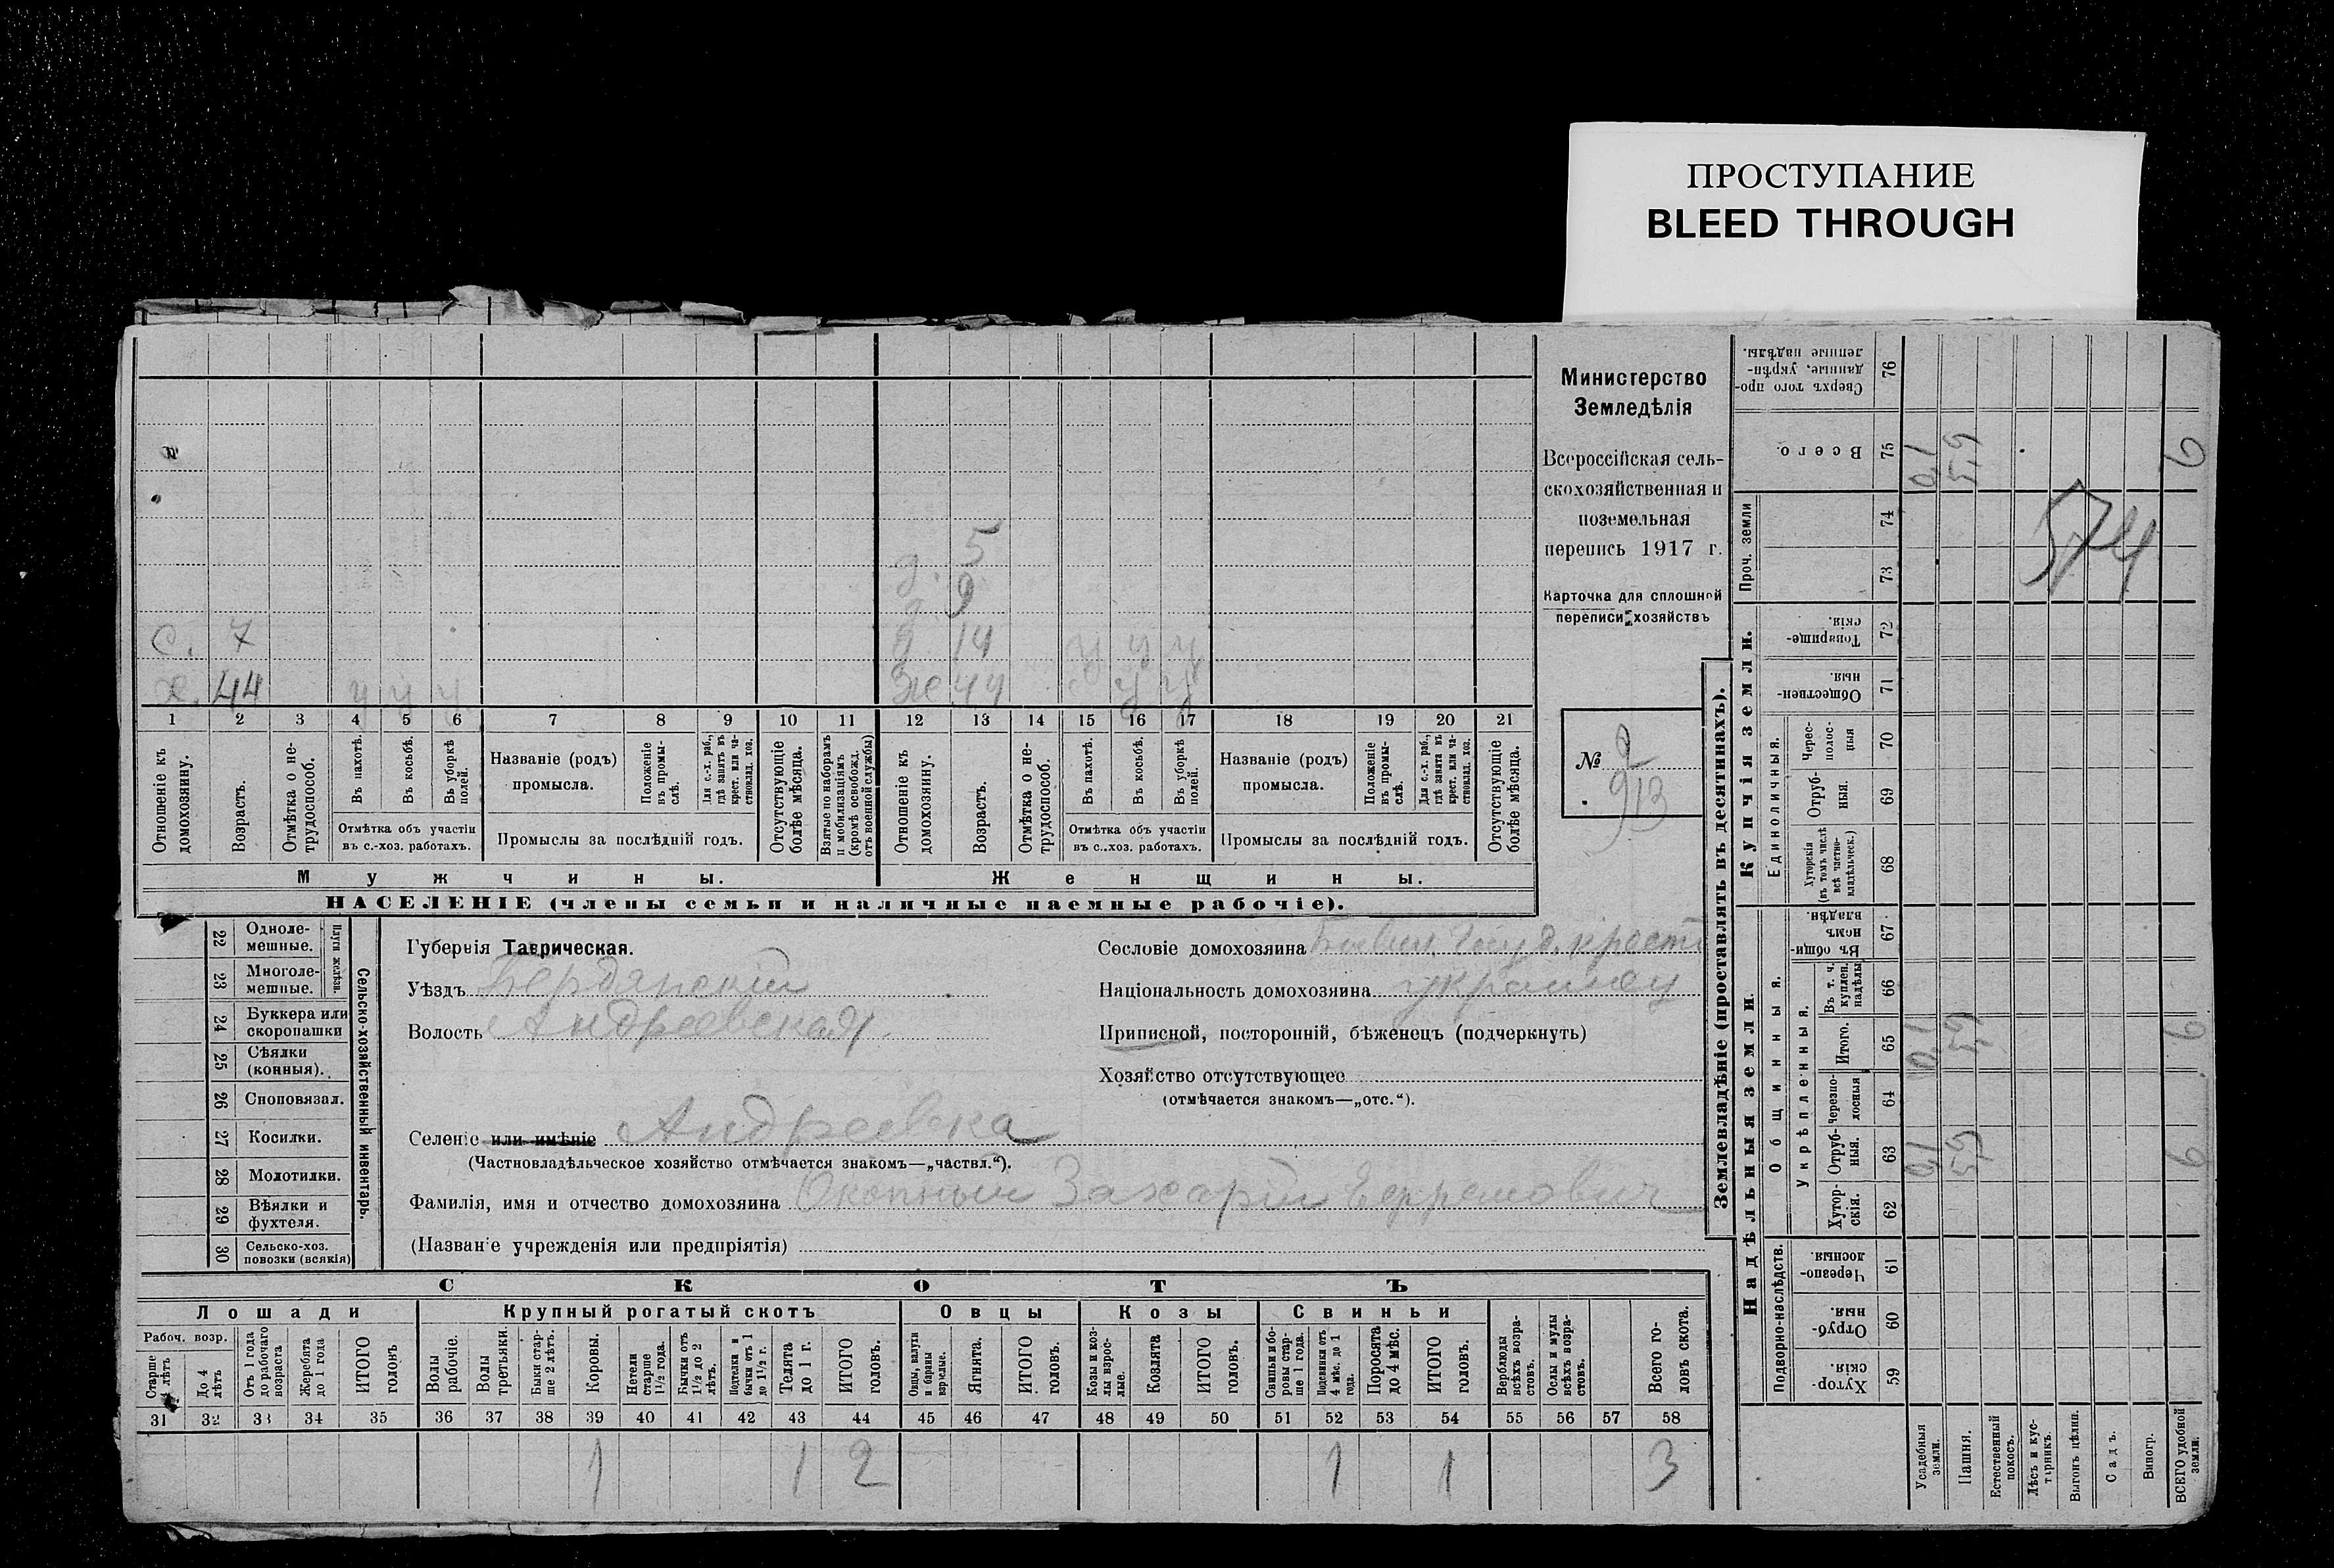 ПРОСТУПАНИЕ
BLEED THROUGH
Министерство
Земледѣлія
Всероссійская сель-
скохозяйственная и
поземельная
перепись 1917 г.
Карточка для сплошной
переписи хозяйствъ
№ 2
913
д. 5
д. 9
с. 7 д. 14 у у у
х. 44 у у у ж 44 у у
1 2 3 4 5 6 7 8 9 10 11 12 13 14 15 16 17 18 19 20 21
Отношеніе къ домохозяину.
Возрастъ.
Отмѣтка о не-трудоспособ.
Въ пахотѣ.
Въ косьбѣ.
Въ уборкѣ полей.
Отмѣтка объ участіи
въ с.-хоз. работахъ.
Названіе (родъ)
промысла.
Положеніе въ промы-слѣ.
Для с.-х. раб., гдѣ занятъ въ крест. или ча-ствовлад. хоз.
Промыслы за послѣдній годъ.
Отсутствующіе болѣе мѣсяца.
Взятые по наборамъ и мобилизаціямъ (кромѣ освобожд. отъ военной службы)
Отношеніе къ домохозяину.
Возрастъ.
Отмѣтка о не-трудоспособ.
Въ пахотѣ.
Въ косьбѣ.
Въ уборкѣ полей.
Отмѣтка объ участіи
въ с.-хоз. работахъ.
Названіе (родъ)
промысла.
Положеніе въ промы-слѣ.
Для с.-х. раб., гдѣ занята въ крест. или ча-ствовлад. хоз.
Промыслы за послѣдній годъ.
Отсутствующіе болѣе мѣсяца.
Мужчины. Женщины.
НАСЕЛЕНІЕ (члены семьи и наличные наемные рабочіе).
22 Одноле-мешные.
23 Многоле-мешные.
Плуги желѣзн.
24 Буккера или скоропашки
25 Сѣялки (конныя).
26 Сноповязал.
27 Косилки.
28 Молотилки.
29 Вѣялки и фухтеля.
30 Сельско-хоз. повозки (всякія)
Сельско-хозяйственный инвентарь.
Губернія Таврическая.
Уѣздъ Бердянскій
Волость Андреевская
Селеніе или имѣніе Андреевка
(Частновладѣльческое хозяйство отмѣчается знакомъ—„частвл.“).
Фамилія, имя и отчество домохозяина Окопный Захарій Ефремович
(Названіе учрежденія или предпріятія)
Сословіе домохозяина Бывш. Госуд. крест
Національность домохозяина украинец
Приписной, посторонній, бѣженецъ (подчеркнуть)
Хозяйство отсутствующее
(отмѣчается знакомъ—„отс.“).
СКОТЪ
Лошади Крупный рогатый скотъ Овцы Козы Свиньи
Рабоч. возр.
Старше 4 лѣтъ
До 4 лѣтъ
Отъ 1 года до рабочаго возраста
Жеребята до 1 года
ИТОГО головъ
Волы рабочіе.
Волы третьяки.
Быки стар-ше 2 лѣтъ.
Коровы.
Нетели старше 1 1/2 года.
Бычки отъ 1 1/2 до 2 лѣтъ.
Подтелки и бычки отъ 1 до 1 1/2 г.
Телята до 1 г.
ИТОГО головъ.
Овцы, валухи и бараны взрослые.
Ягнята.
ИТОГО головъ.
Козы и коз-лы взрос-лые.
Козлята
ИТОГО головъ.
Свиньи и бо-ровы стар-ше 1 года.
Подсвинки отъ 4 мѣс. до 1 года.
Поросята до 4 мѣс.
ИТОГО головъ.
Верблюды всѣхъ возра-стовъ.
Ослы и мулы всѣхъ возра-стовъ.
Всего го-ловъ скота.
31 32 33 34 35 36 37 38 39 40 41 42 43 44 45 46 47 48 49 50 51 52 53 54 55 56 57 58
1 1 2 1 1 3
Землевладѣніе (проставлять въ десятинахъ).
Надѣльныя земли.
Купчія земли.
Проч. земли
Подворно-наслѣдств.
Общинныя.
Укрѣпленныя.
Единоличныя.
Сверхъ того про-данные, укрѣп-ленные надѣлы. 76
Всего. 75 0,1 5,9 6
74
73
574
Товарище-скія. 72
Обществен-ныя. 71
Черес-полос-ныя 70
Отруб-ныя. 69
Хуторскія (въ томъ числѣ всѣ частно-владѣльческ.) 68
Въ общин-номъ владѣн. 67
Въ т. ч. куплен. надѣлы 66
Итого. 65 0,1 5,9 6
Черезпо-лосныя 64
Отруб-ныя. 63 0,1 5,9 6
Хутор-скія. 62
Черезпо-лосныя. 61
Отруб-ныя. 60
Хутор-скія. 59
Усадебныя земли.
Пашня.
Естественный покосъ.
Лѣсъ и кус-тарникъ.
Выгонъ цѣлин.
Садъ.
Виногр.
ВСЕГО удобной земли.